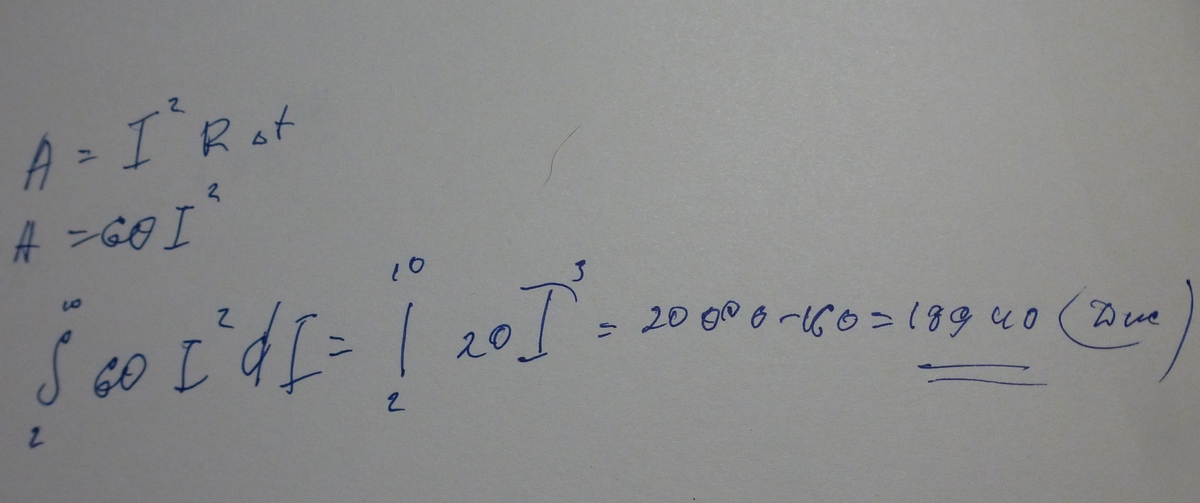 A = I² R Δt
A = 60 I²
∫₂¹⁰ 60 I² dI = |₂¹⁰ 20 I³ = 20000 - 160 = 19940 (Дж)